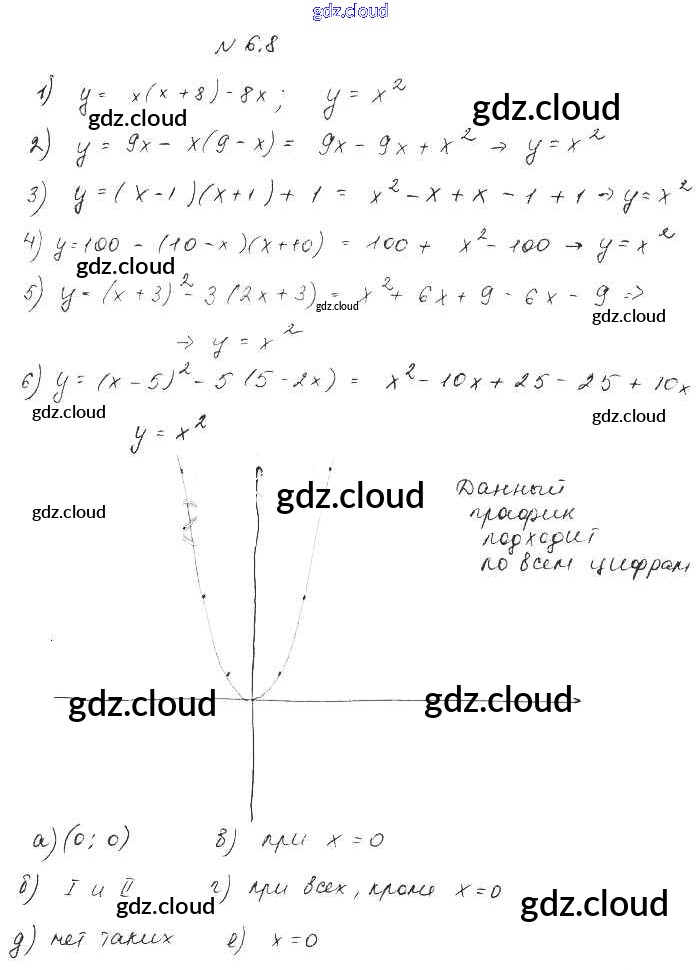 gdz.cloud
N 6.8
1) y = x(x+8) - 8x; y = x²
gdz.cloud gdz.cloud
2) y = 9x - x(9-x) = 9x - 9x + x² → y = x²
3) y = (x-1)(x+1) + 1 = x² - x + x - 1 + 1 → y = x²
4) y = 100 - (10-x)(x+10) = 100 + x² - 100 → y = x²
gdz.cloud
5) y = (x+3)² - 3(2x+3) = x² + 6x + 9 - 6x - 9 =>
gdz.cloud gdz.cloud
→ y = x²
6) y = (x-5)² - 5(5-2x) = x² - 10x + 25 - 25 + 10x
gdz.cloud gdz.cloud
y = x²
gdz.cloud
Данный
график
gdz.cloud
подходит
по всем цифрам
gdz.cloud gdz.cloud
а) (0; 0) в) при x = 0
б) I и II г) при всех, кроме x = 0
gdz.cloud gdz.cloud
д) нет таких е) x = 0